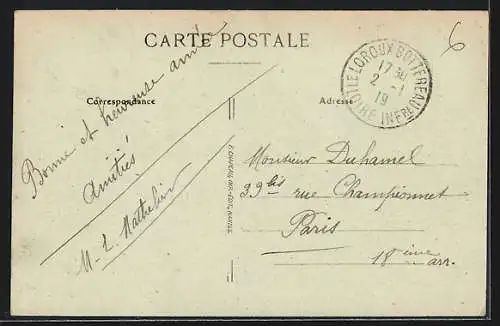 CARTE POSTALE
6
LE LOROUX BOTTEREAU
17 30
2 - 1
19
LOIRE INFRE
Correspondance
Adresse
Bonne et heureuse année
Amitiés
M. L. Mathelin
Monsieur Duhamel
99 bis rue Championnet
Paris
18 ième arr.